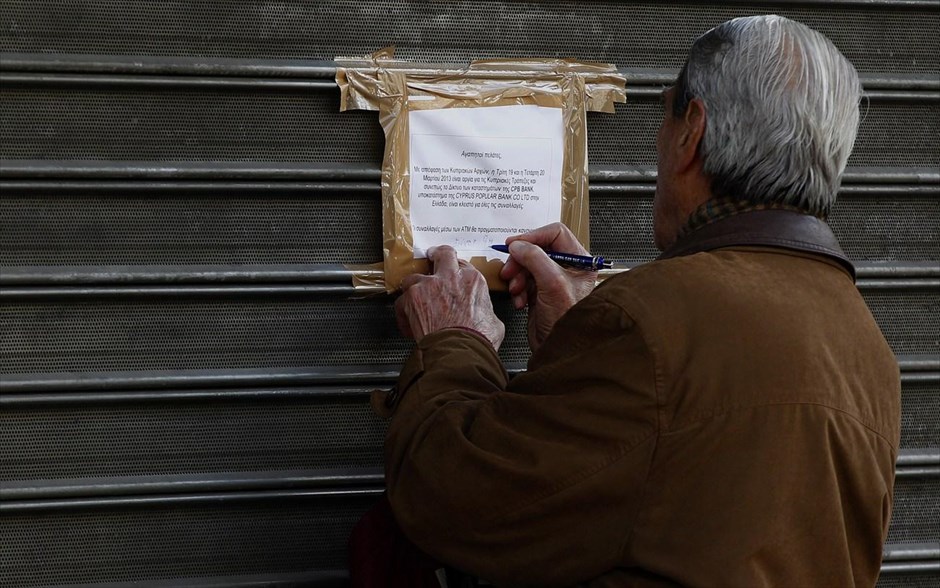 Αγαπητοί πελάτες,
Με απόφαση των Κυπριακών Αρχών, η Τρίτη 19 και η Τετάρτη 20
Μαρτίου 2013 είναι αργία για τις Κυπριακές Τράπεζες και
συνεπώς το Δίκτυο των καταστημάτων της CPB BANK
υποκατάστημα της CYPRUS POPULAR BANK CO LTD στην
Ελλάδα, είναι κλειστό για όλες τις συναλλαγές.
συναλλαγές μέσω των ATM θα πραγματοποιούνται